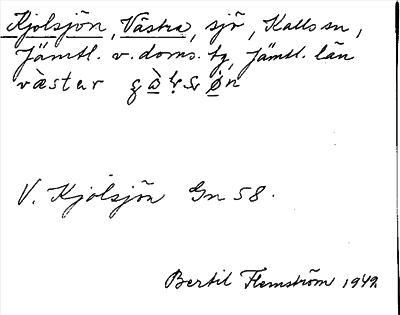 Kjolsjön, Västra, sjö, Kalls sn,
Jämtl. v. doms. tg, Jämtl. län
västar
V. Kjolsjön Gn 58.
Bertil Flemström 1942